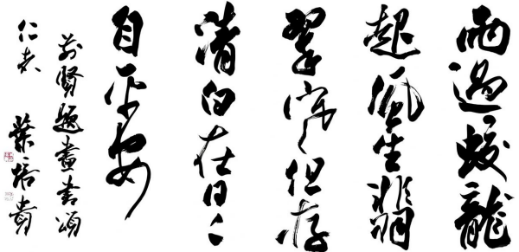 雨過蛟龍
起風生翡
翠寒但存
清白在日〻
自平安
前賢題畫書頌
仁者 葉培貴